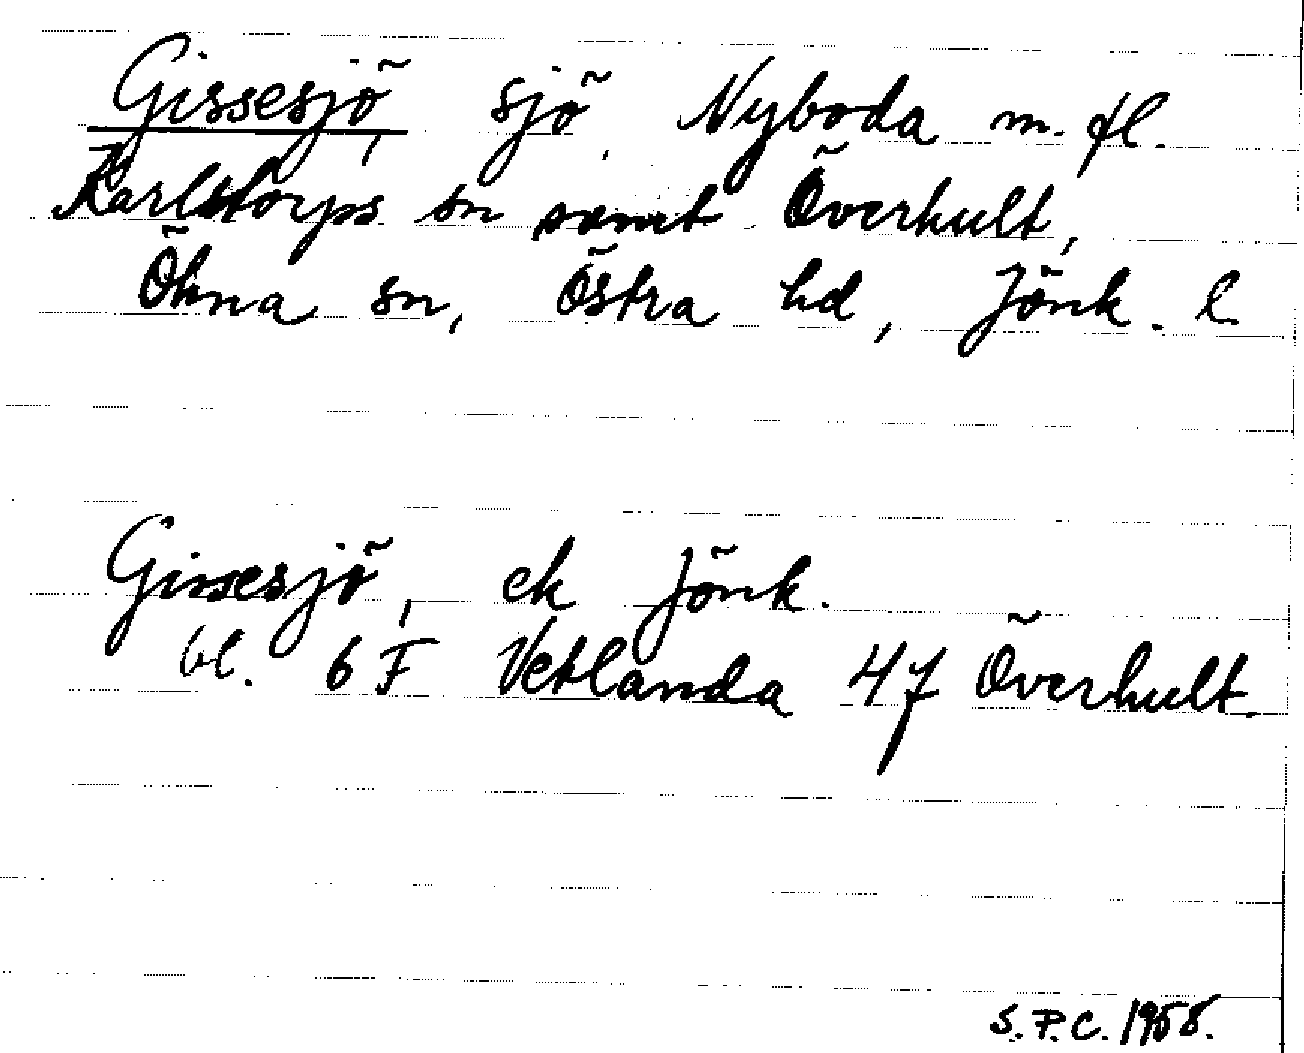 Gissesjö, sjö, Nyboda m. fl.
Karlstorps sn samt Överhult,
Ökna sn, Östra hd, Jönk. l.
Gissesjö, ek Jönk.
bl. 6 F Vetlanda 4 f Överhult.
S.P.C. 1958.